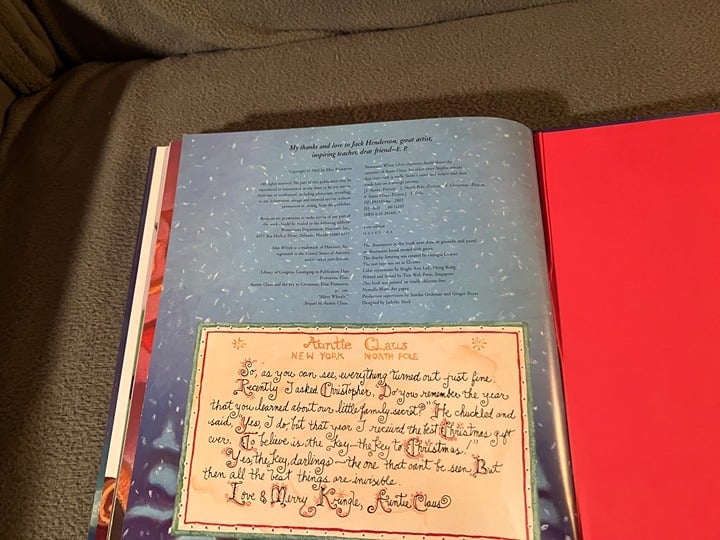 My thanks and love to Jack Henderson, great artist,
inspiring teacher, dear friend—E. P.
Copyright © 2002 by Elise Primavera
All rights reserved. No part of this publication may be
reproduced or transmitted in any form or by any means,
electronic or mechanical, including photocopy, recording,
or any information storage and retrieval system, without
permission in writing from the publisher.
Requests for permission to make copies of any part of
the work should be mailed to the following address:
Permissions Department, Harcourt, Inc.,
6277 Sea Harbor Drive, Orlando, Florida 32887-6777.
Silver Whistle is a trademark of Harcourt, Inc.,
registered in the United States of America
and/or other jurisdictions.
Library of Congress Cataloging-in-Publication Data
Primavera, Elise.
Auntie Claus and the key to Christmas/Elise Primavera.
p. cm.
"Silver Whistle."
Sequel to: Auntie Claus.
Summary: When Chris expresses doubt about the
existence of Santa Claus, his older sister Sophie
The illustrations in this book were done in gouache and pastel
on illustration board treated with gesso.
The display lettering was created by Georgia Deaver.
The text type was set in Cloister.
Color separations by Bright Arts Ltd., Hong Kong
Printed and bound by Tien Wah Press, Singapore
This book was printed on totally chlorine-free
Nymolla Matte Art paper.
Production supervision by Sandra Grebenar and Ginger Boyer
Designed by Judythe Sieck
Auntie Claus
NEW YORK NORTH POLE
So, as you can see, everything turned out just fine.
Recently I asked Christopher, "Do you remember the year
that you learned about our little family secret?" He chuckled and
said, "Yes, I do, but that year I received the best Christmas gift
ever. To believe is the key—the key to Christmas."
Yes, the key, darlings—the one that can't be seen. But
then all the best things are invisible.
Love & Merry Kringle, Auntie Claus